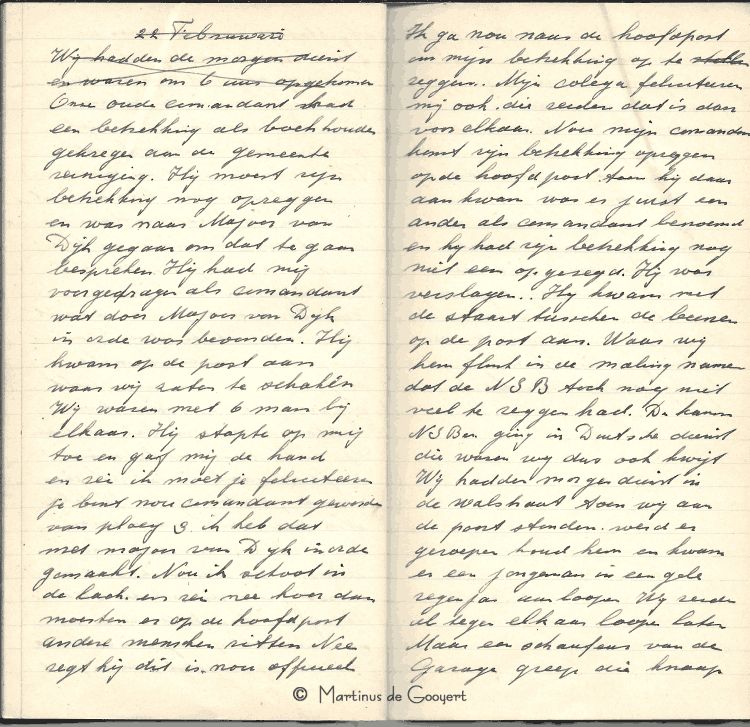 22 Februari
Wij hadden de morgen dienst
en waren om 6 uur opgekomen
Onze oude comandant had
een betrekking als boekhouder
gekregen aan de gemeente
reiniging. Hij moest zijn
betrekking nog opzeggen
en was naar Majoor van
Dijk gegaan om dat te gaan
bespreken. Hij had mij
voorgedragen als comandant
wat door Majoor van Dijk
in orde was bevonden. Hij
kwam op de post aan
waar wij zaten te schaken
Wij waren met 6 man bij
elkaar. Hij stapte op mij
toe en gaf mij de hand
en zei ik moet je feliciteeren
je bent nou comandant geworden
van ploeg 3. ik heb dat
met majoor van Dijk in orde
gemaakt. Nou ik schoot in
de lach. en zei nee hoor dan
moesten er op de hoofdpost
andere menschen zitten Nee
zegt hij dit is nou officieel
Ik ga nou naar de hoofdpost
om mijn betrekking op te
zeggen. Mijn colega feliciteeren
mij ook. die zeiden dat is door
voor elkaar. Nou mijn comandant
komt zijn betrekking opzeggen
op de hoofdpost. toen hij daar
aankwam was er juist een
ander als comandant benoemd
en hy had zijn betrekking nog
niet een opgezegd. Hij was
verslagen.. Hy kwam met
de staart tusschen de beenen
op de post aan. Waar wij
hem flink in de maling namen
dat de N S B toch nog niet
veel te zeggen had. De
NSBer ging in Duitsche dienst
die waren wy dus ook kwijt
Wij hadden morgendienst in
de walstraat toen wij aan
de poort stonden. werd er
geroepen houd hem en kwam
er een jongeman in een gele
regenjas aanloopen Wij zeiden
al tegen elkaar loopen laten
Maar een schauffeur van de
Garage greep die knaap
© Martinus de Gooyert